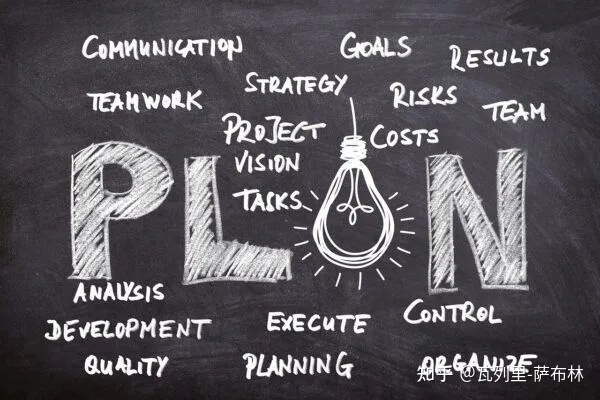 COMMUNICATION
GOALS
RESULTS
STRATEGY
TEAMWORK
RISKS
TEAM
PROJECT
COSTS
VISION
TASKS
PLAN
ANALYSIS
CONTROL
DEVELOPMENT
EXECUTE
QUALITY
PLANNING
ORGANIZE
知乎 @瓦列里-萨布林